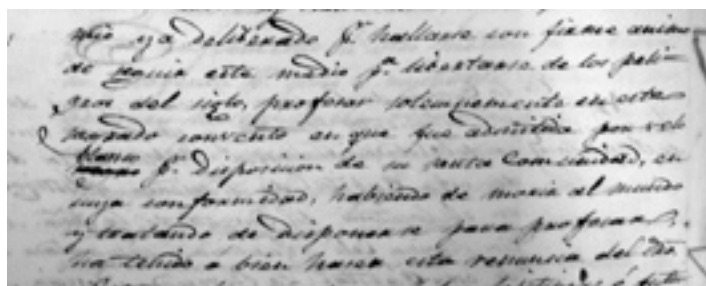 mio ya deliberado pr. hallarse con firme animo
de seguir este medio pa. libertarse de los peli-
gros del siglo, profesar solemnemente en este
sagrado convento en que fue admitida por velo
blanco pr. disposicion de su santa Comunidad, en
cuya conformidad, habiendo de morir al mundo
y tratando de disponerse para profesar,
ha tenido á bien hacer esta renuncia del